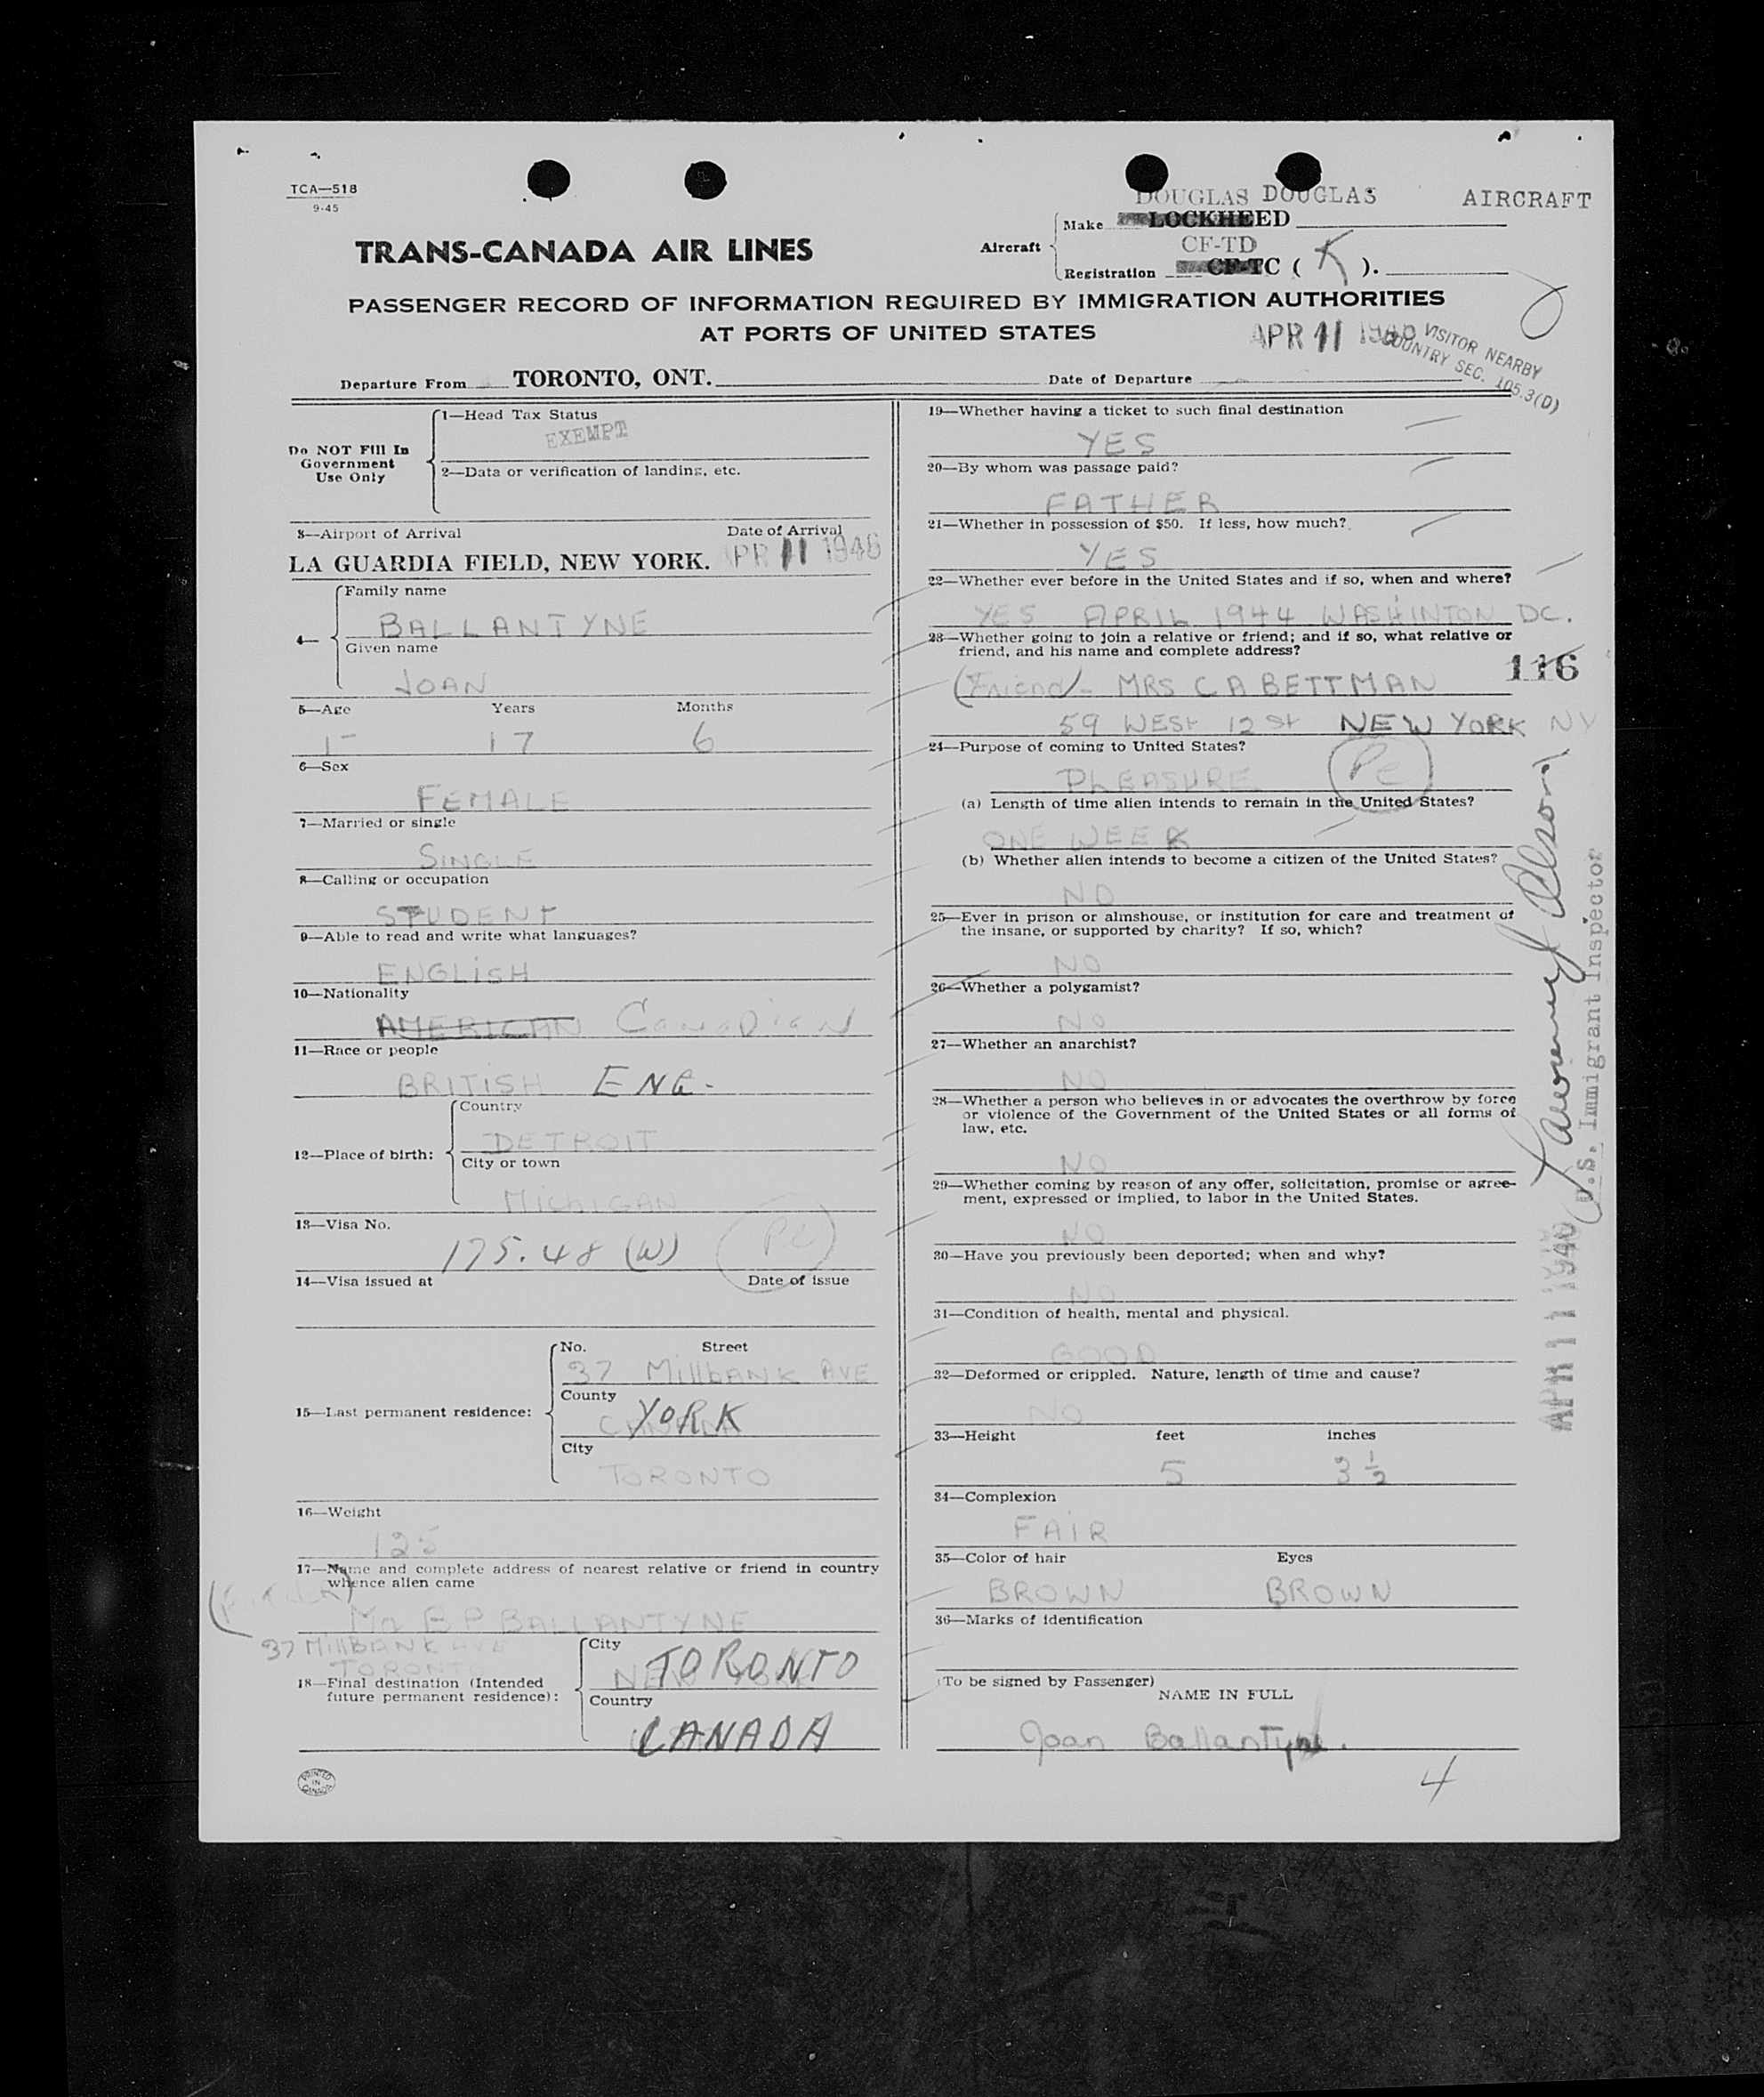 TCA—518
9-45
DOUGLAS DOUGLAS AIRCRAFT
TRANS-CANADA AIR LINES
Aircraft
Make LOCKHEED
CF-TD
Registration CF-TC ( K ).
PASSENGER RECORD OF INFORMATION REQUIRED BY IMMIGRATION AUTHORITIES
AT PORTS OF UNITED STATES
APR 11 1946
VISITOR NEARBY
COUNTRY SEC. 105.3(D)
Departure From TORONTO, ONT.
Date of Departure
Do NOT Fill In
Government
Use Only
1—Head Tax Status
EXEMPT
2—Data or verification of landing, etc.
3—Airport of Arrival
Date of Arrival
LA GUARDIA FIELD, NEW YORK.
APR 11 1946
4—
Family name
BALLANTYNE
Given name
JOAN
5—Age Years Months
17 6
6—Sex
FEMALE
7—Married or single
SINGLE
8—Calling or occupation
STUDENT
9—Able to read and write what languages?
ENGLISH
10—Nationality
AMERICAN Canadian
11—Race or people
BRITISH ENG.
12—Place of birth:
Country
DETROIT
City or town
MICHIGAN
13—Visa No.
175.48 (W)
14—Visa issued at Date of issue
15—Last permanent residence:
No. Street
37 MillBANK AVE
County
CANADA YORK
City
TORONTO
16—Weight
125
17—Name and complete address of nearest relative or friend in country
whence alien came
(Father)
Mr E P BALLANTYNE
37 MillBANK AVE
TORONTO
18—Final destination (Intended
future permanent residence):
City
TORONTO
Country
CANADA
PRINTED
IN
CANADA
19—Whether having a ticket to such final destination
YES
20—By whom was passage paid?
FATHER
21—Whether in possession of $50. If less, how much?
YES
22—Whether ever before in the United States and if so, when and where?
YES APRIL 1944 WASHINTON DC.
23—Whether going to join a relative or friend; and if so, what relative or
friend, and his name and complete address?
116
(Friend) - MRS C A BETTMAN
59 WEST 12 St NEW YORK NY
24—Purpose of coming to United States?
PLEASURE
(a) Length of time alien intends to remain in the United States?
ONE WEEK
(b) Whether alien intends to become a citizen of the United States?
NO
25—Ever in prison or almshouse, or institution for care and treatment of
the insane, or supported by charity? If so, which?
NO
26—Whether a polygamist?
NO
27—Whether an anarchist?
NO
28—Whether a person who believes in or advocates the overthrow by force
or violence of the Government of the United States or all forms of
law, etc.
NO
29—Whether coming by reason of any offer, solicitation, promise or agree-
ment, expressed or implied, to labor in the United States.
NO
30—Have you previously been deported; when and why?
NO
31—Condition of health, mental and physical.
GOOD
32—Deformed or crippled. Nature, length of time and cause?
NO
33—Height feet inches
5 3 ½
34—Complexion
FAIR
35—Color of hair Eyes
BROWN BROWN
36—Marks of identification
(To be signed by Passenger)
NAME IN FULL
Joan Ballantyne.
4
U.S. Immigrant Inspector
APR 11 1946